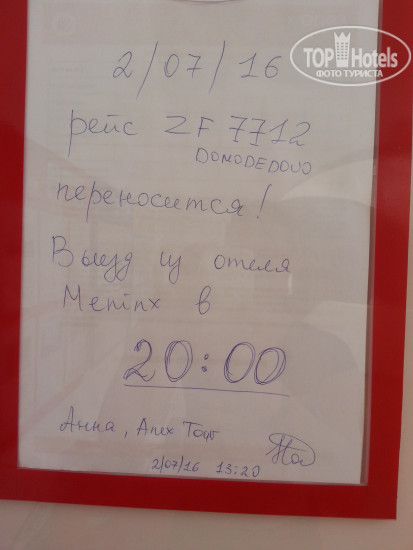 TOP Hotels
ФОТО ТУРИСТА
2/07/16
рейс ZF 7712
DOMODEDOVO
переносится!
Выезд из отеля
Meninx в
20:00
Анна, Anex Tour
2/07/16 13:20